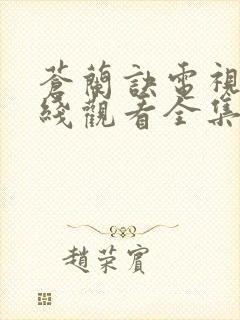 蒼蘭訣電視
綫觀看全集
趙荣賓